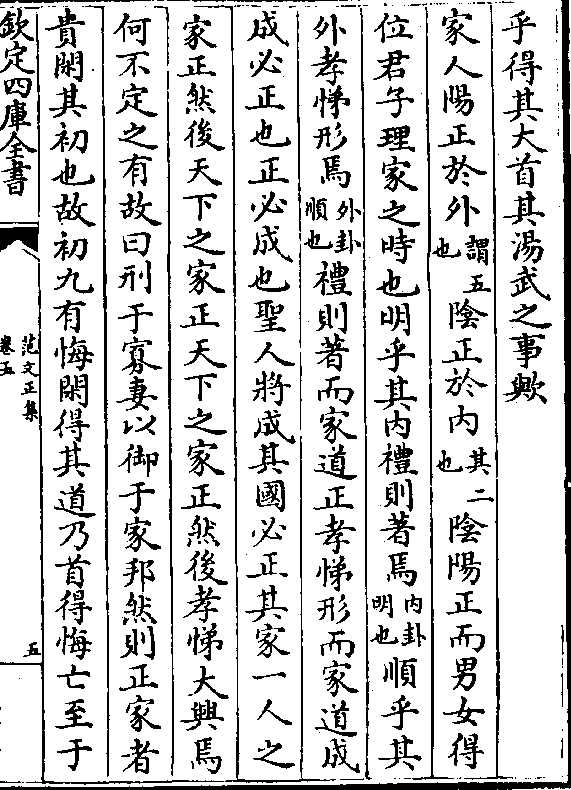 乎得其大首其湯武之事歟
家人陽正於外謂五也陰正於内其二也陰陽正而男女得
位君子理家之時也明乎其内禮則著焉内卦明也順乎其
外孝悌形焉外卦順也禮則著而家道正孝悌形而家道成
成必正也正必成也聖人將成其國必正其家一人之
家正然後天下之家正天下之家正然後孝悌大興焉
何不定之有故曰刑于寡妻以御于家邦然則正家者
貴閑其初也故初九有悔閑得其道乃首得悔亡至于
欽定四庫全書
范文正集
卷五
五